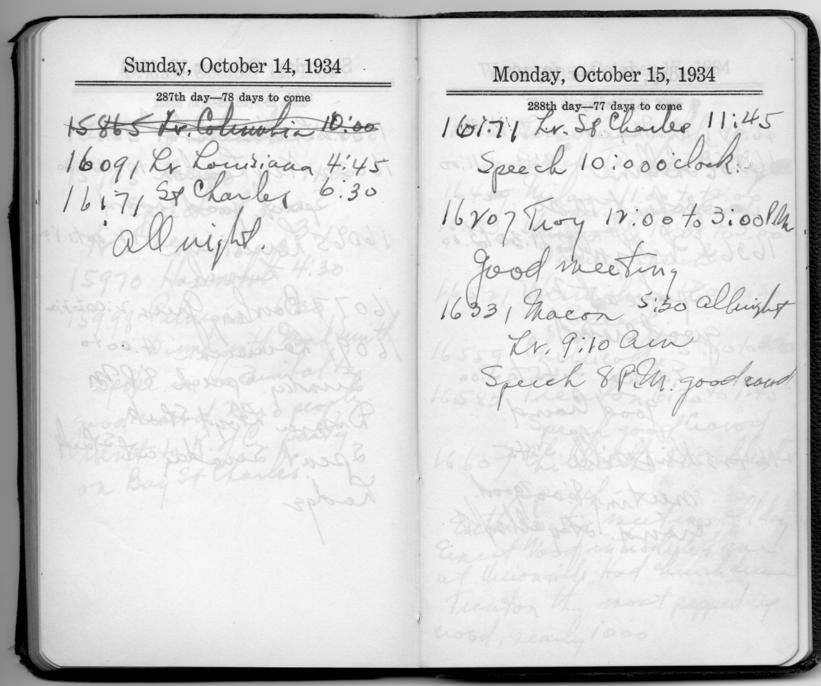 Sunday, October 14, 1934
287th day—78 days to come
15865 Lv. Columbia 10:00
16091 Lv Louisiana 4:45
16171 St Charles 6:30
all night.
Monday, October 15, 1934
288th day—77 days to come
16171 Lv. St Charles 11:45
Speech 10:00 o'clock.
16207 Troy 12:00 to 3:00 P.M.
Good meeting
16331 Macon 5:30 all night
Lv. 9:10 am
Speech 8 P.M. good crowd